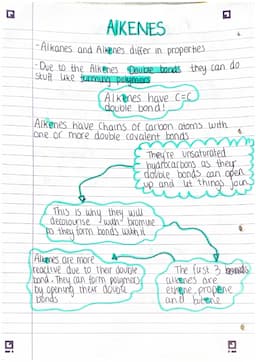 ALKENES
- Alkanes and Alkenes differ in properties
- Due to the Alkenes Double bonds they can do
stuff like turning polymers
Alkenes have C=C
double bond!
Alkenes have Chains of Carbon atoms with
one or more double covalent bonds
They're unsaturated
hydrocarbons as their
double bonds can open
up and let things join
This is why they will
decolourise with bromine
as they form bonds with it
Alkenes are more
reactive due to their double
bond. They can form polymers
by opening their double
bonds
The first 3
alkenes are
ethene, propene
and butene